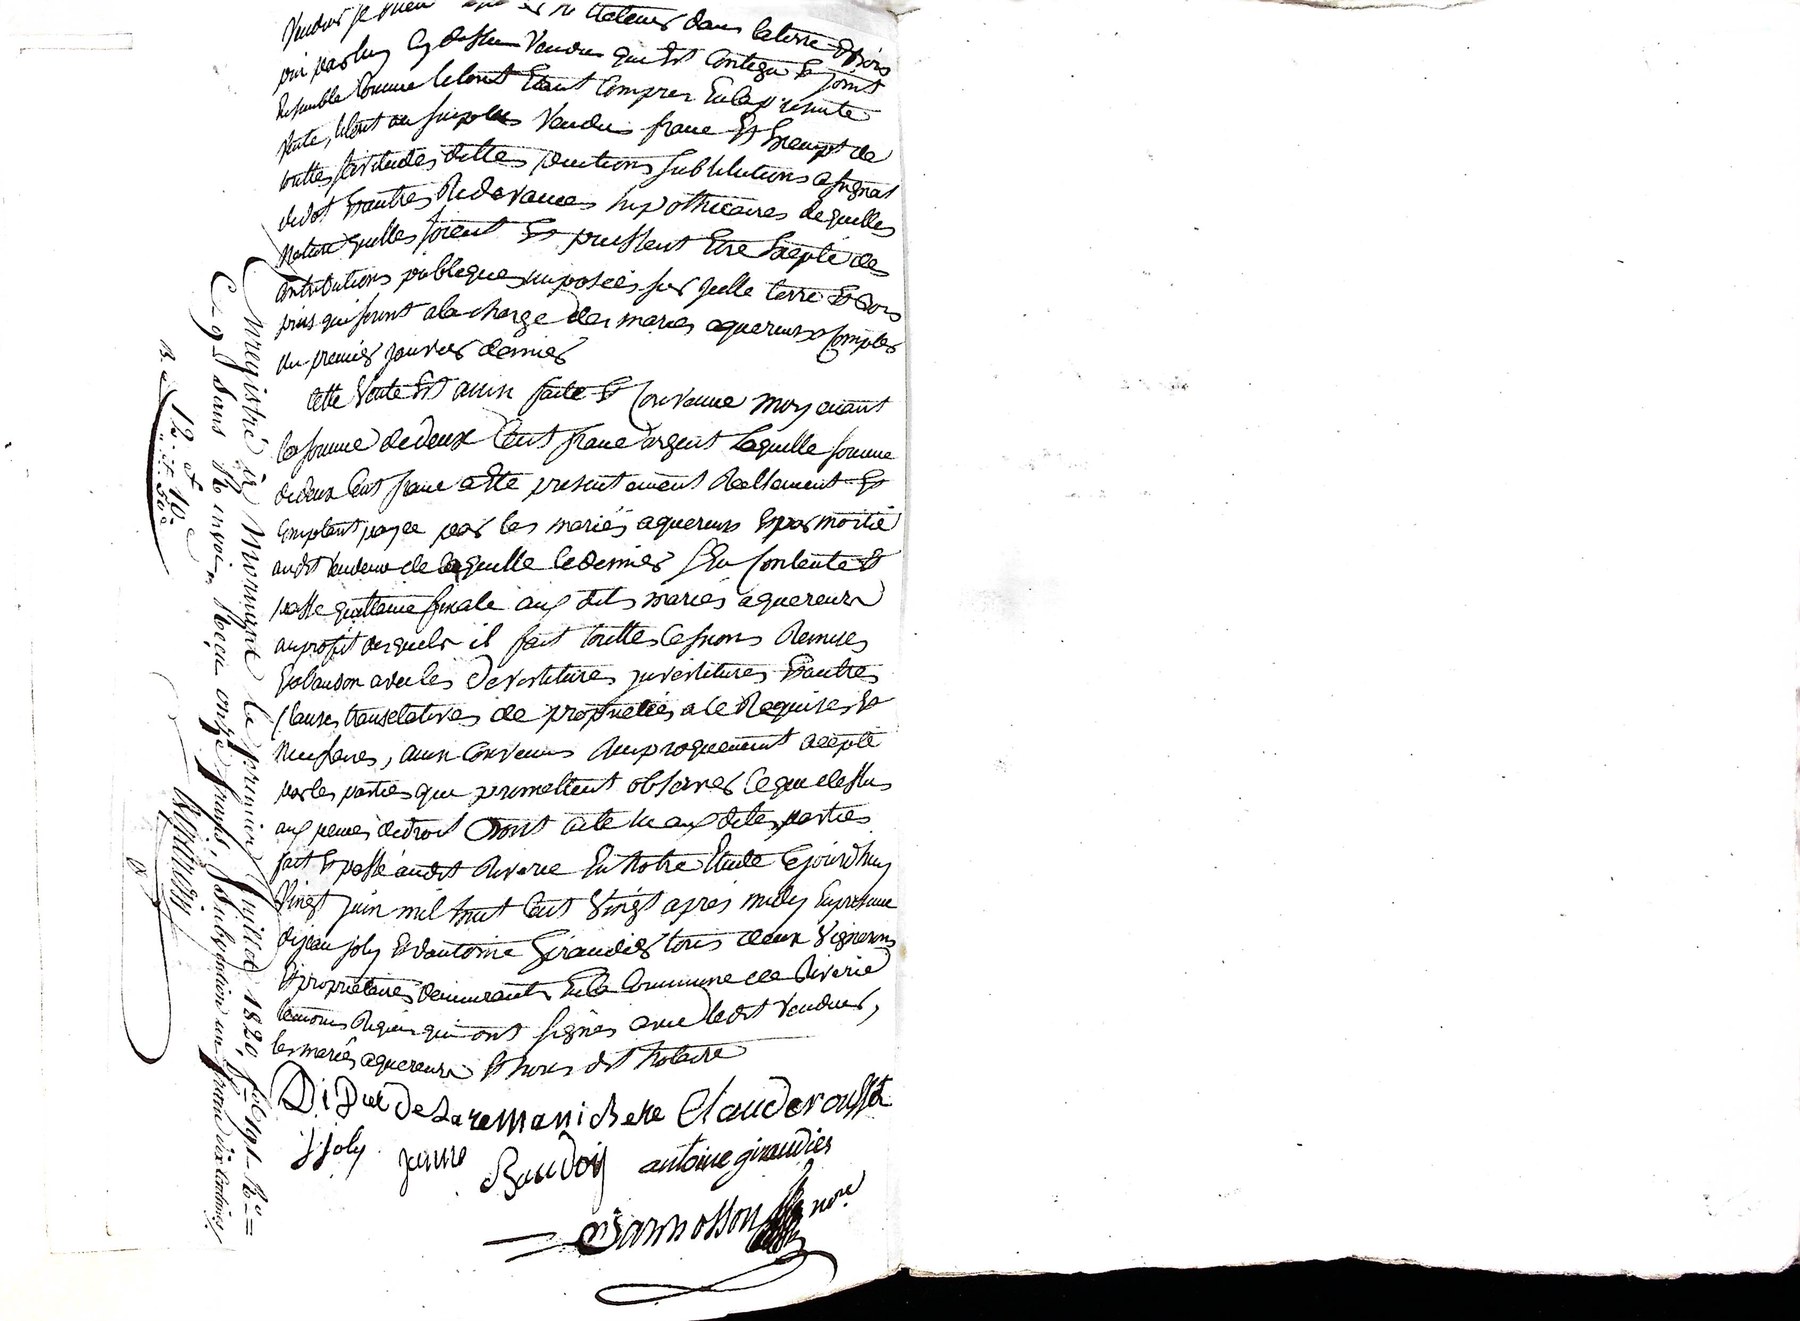 dans la terre et bois
par luy cy dessus vendu qui est contigu et joint
ensemble comme le tout etant compris en la presente
vente, le tout au surplus vendu franc et exempt de
touttes servitudes dettes pentions substitutions asignat
de dot et autres Redevances hipothecaires de quelles
Nature quelles soient et puissent Etre Exepté des
contributions publiques imposées sur jcelle terre et bois
pins qui seront a la charge des mariés aquereurs a compter
du premier janvier dernier
Cette Vente est ainsi faite et Convenue moyenant
la somme de deux Cent franc d'argent laquelle somme
de deux Cent franc a ete presentement Reellement et
comptant payée par les mariés aquereurs et par moitié
audit vendeur de laquelle le dernier s'En Contente et
passe quittance finale aux dits mariés aquereurs
au profit desquels il fait touttes Cessions Remises
Et abandon avec les devestitures jnvestitures Et autres
Clauses translatives de proprietés a ce Requises et
necessaires, ainsi convenus Reciproquement accepté
par les parties qui promettent observer ce que dessus
aux peines de droit dont acte lu aux dites parties
fait et passé audit Riverie En Notre Etude Cejourdhuy
Vingt juin mil huit Cent Vingt apres midy En presence
de jean joly et d'antoine Giraudier tous deux vignerons
et proprietaires demeurants En la Commune de Riverie
temoins Requis qui ont signés avec ledit vendeur,
les mariés aquereurs et nous dit Notaire
Didier de La remanichere Claude rousset
J Joly jeanne Baudoy antoine giraudier
nore.
Enregistré à Mornant le premier Juillet 1820, fol. 191. Ro.=
C. 9 Sans Renvoi. Reçu onze francs, Subvention un franc dix Centimes.
12. f 10 c